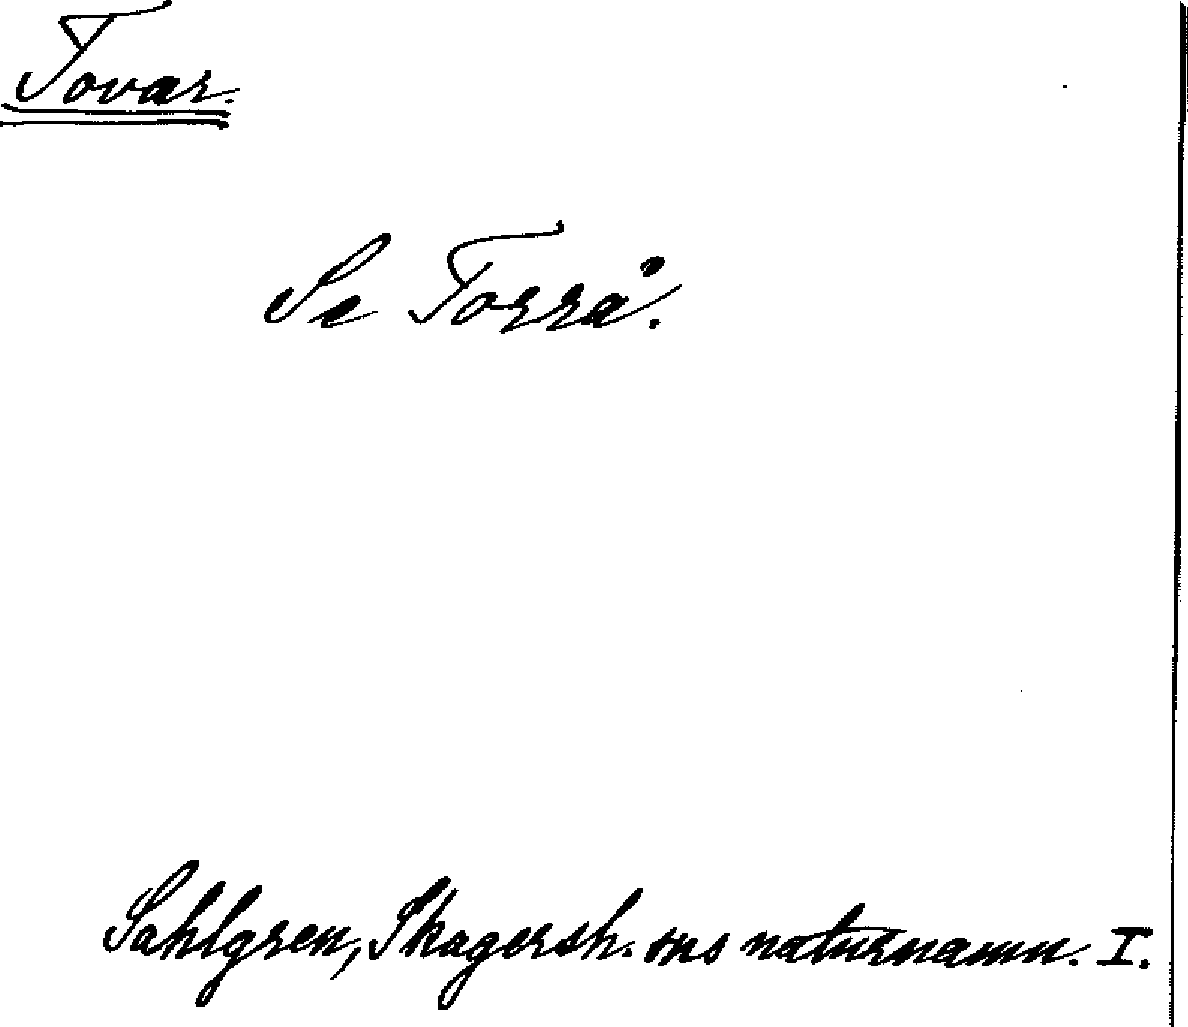 Tovar.
Se Torrå.
Sahlgren, Skagersh. sns naturnamn. I.